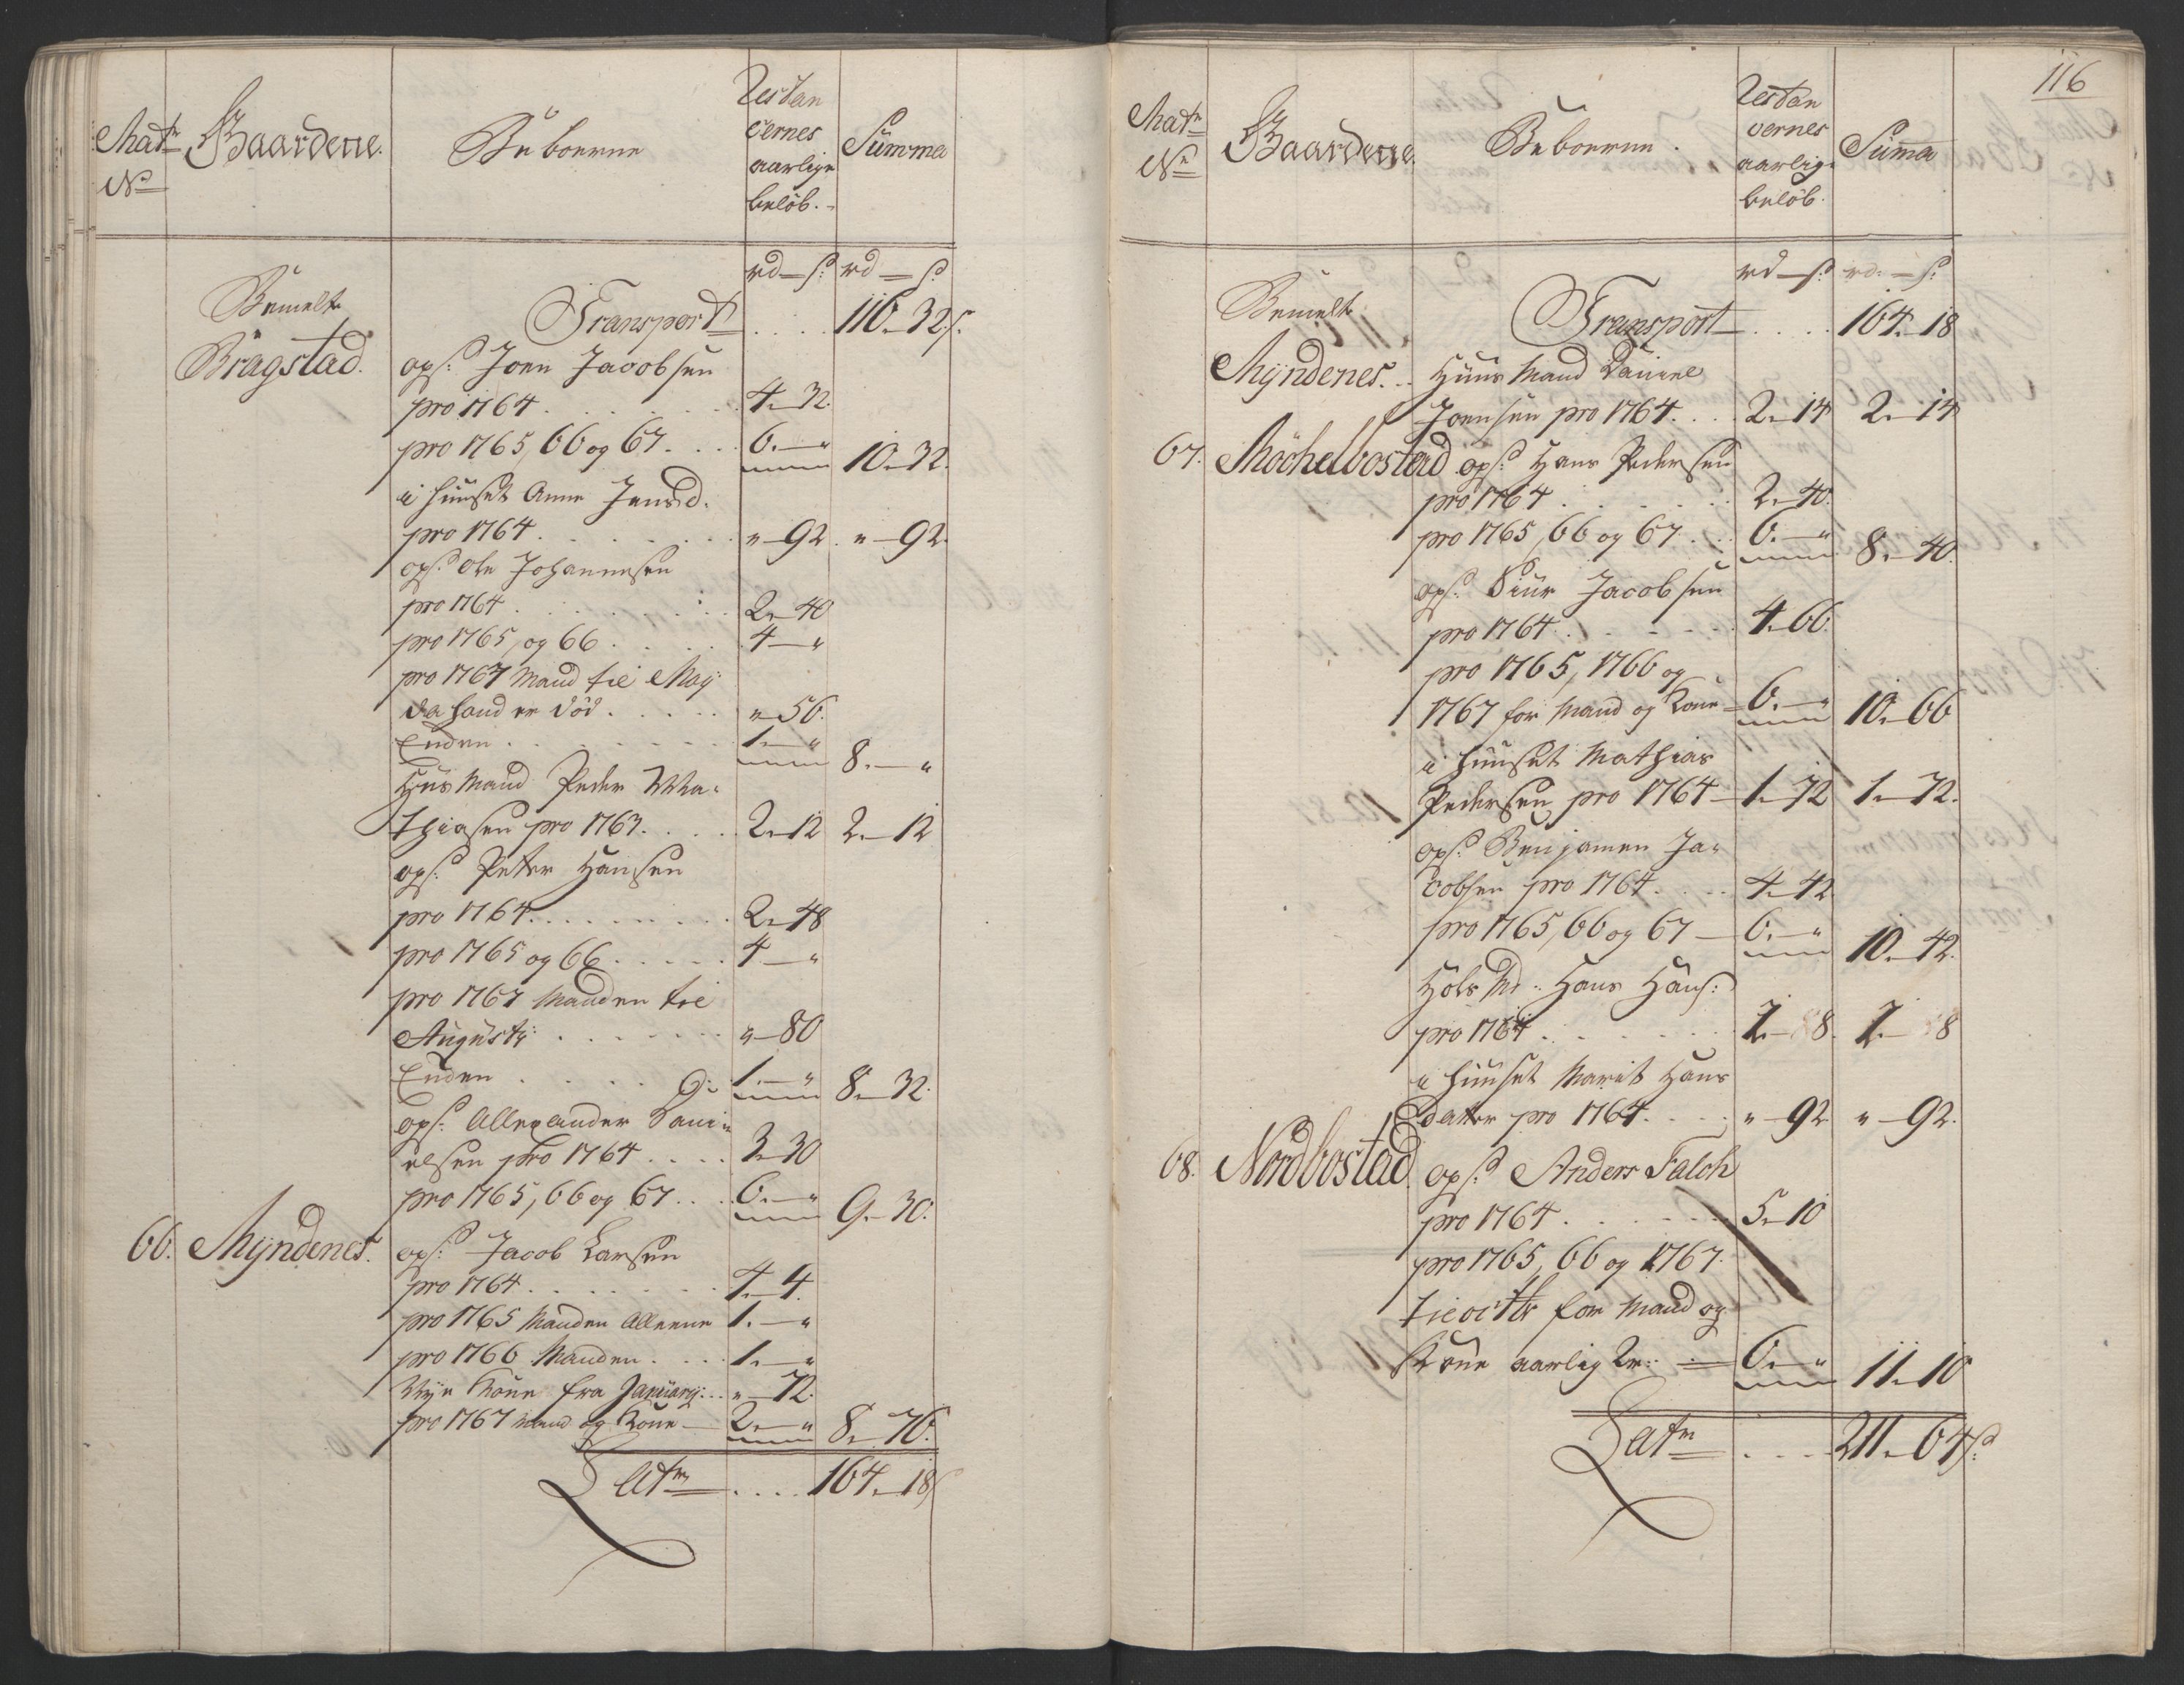 Matr
No
Gaardene.
Beboerne
Restan
cernes
aarlige
beløb.
Summa
rd — s: rd — s
Bemelte
Transport . . . . 116.-32 s.
Bragstad.
ops: Joen Jacobsen
pro 1764 . . . . 4.-32.
pro 1765, 66 og 67. . . . 6.-" 10.-32.
i huuset Anne Jensd.
pro 1764 . . . . "-92. "-92.
ops: Ole Johannesen
pro 1764 . . . . 2.-40
pro 1765, og 66 . . . . 4-"
pro 1767 Mand til Maij
da hand er død . . . . "-56.
Enden . . . . 1.-" 8.-"
Huus Mand Peder Ma-
thiasen pro 1763. . . . 2.-12 2.-12
ops: Peter Hansen
pro 1764 . . . . 2.-48
pro 1765 og 66 . . . . 4-"
pro 1767 Manden til
Augusti . . . . "-80
Enden . . . . 1.-" 8.-32.
ops: Allexander Dani-
elsen pro 1764 . . . . 3.-30
pro 1765, 66 og 67. . . 6.-" 9.-30.
66. Myndenes.
ops: Jacob Larsen
pro 1764 . . . . 4.-4.
pro 1765 Manden Alleene 1.-"
pro 1766 Manden . . . . 1.-"
Nye Kone fra Januarij . . . "-72.
pro 1767 Mand og Kone — 2.-" 8.-76.
Latr . . . . 164.-18 s
116
Matr
No
Gaardene.
Beboerne.
Restan
cernes
aarlige
beløb.
Summa
rd — s: rd. — s:
Bemelte
Transport . . . . 164.-18
Myndenes. . . Huus Mand Daniel
Joensen pro 1764. . . . 2.-14 2.-14
67. Möchelbostad ops: Hans Pedersen
pro 1764 . . . . 2.-40.
pro 1765, 66 og 67 . . . 6.-" 8.-40.
ops: Siur Jacobsen
pro 1764 . . . . 4.-66.
pro 1765, 1766 og
1767 for Mand og Kone — 6.-" 10.-66
i huuset Mathias
Pedersen pro 1764 — 1.-72 1.-72.
ops: Benjamen Ja-
cobsen pro 1764. . . . 4.-42
pro 1765, 66 og 67 — 6.-" 10.-42.
Hans Hans:
pro 1764 . . . .
i huuset Marit Hans
datter pro 1764. . . . "-92 "-92.
68. Nordbostad. ops: Anders Falch
pro 1764 . . . . 5.-10
pro 1765, 66 og 1767.
for Mand og
Kone aarlig 2r: — 6.-" 11.-10
Latr . . . . 211.-64 s: